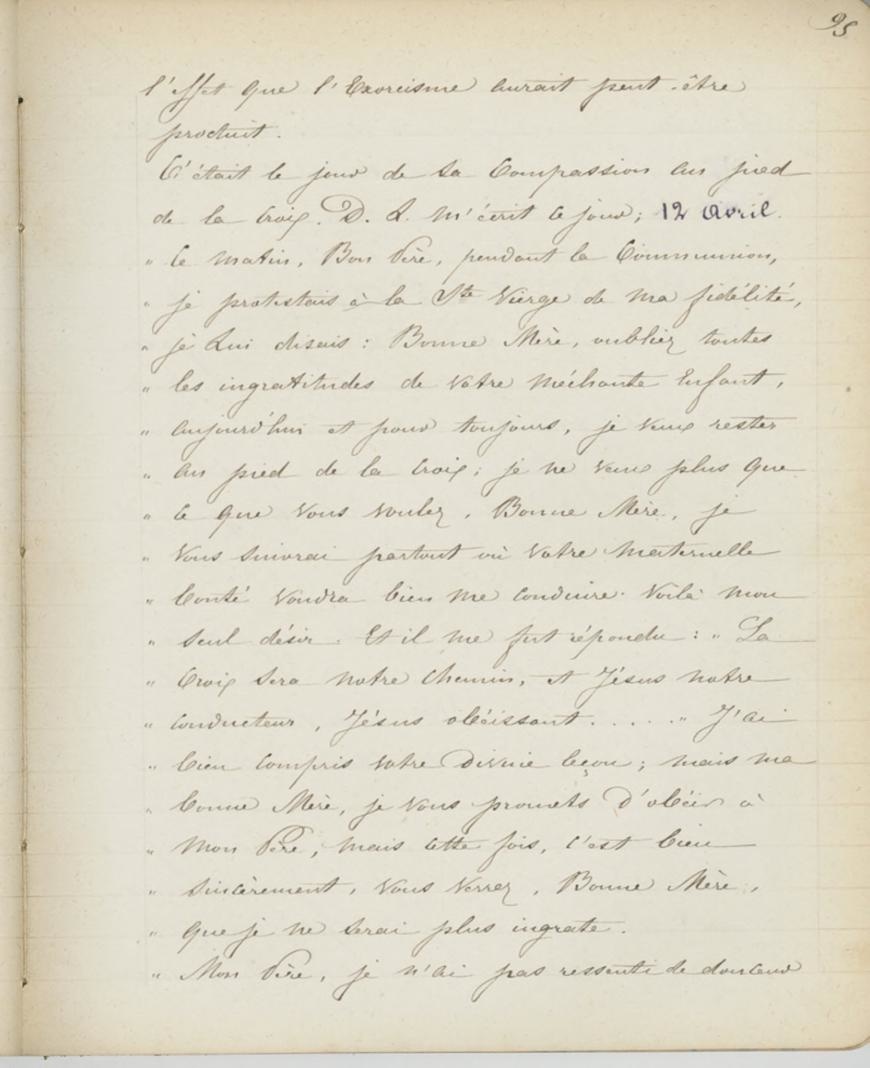 95
l'effet que l'Exorcisme aurait peut-être
produit.
C'était le jour de la Compassion au pied
de la Croix. D. L. m'écrit ce jour; 12 Avril.
" Ce matin, Bon Père, pendant la Communion,
" je protestais à la Ste Vierge de ma fidélité,
" je Lui disais : Bonne Mère, oubliez toutes
" les ingratitudes de votre méchante Enfant,
" aujourd'hui et pour toujours, je veux rester
" au pied de la Croix; je ne veux plus que
" ce que vous voulez, Bonne Mère, je
" vous suivrai partout où votre maternelle
" bonté voudra bien me conduire. Voilà mon
" seul désir. Et il me fut répondu : " La
" Croix sera notre chemin, et Jésus notre
" conducteur, Jésus obéissant . . . . . " J'ai
" bien compris votre Divine leçon; mais ma
" bonne Mère, je vous promets d'obéir à
" mon Père, mais cette fois, c'est bien
" sincèrement, vous verrez, Bonne Mère,
" que je ne serai plus ingrate.
" Mon Père, je n'ai pas ressenti de douceur